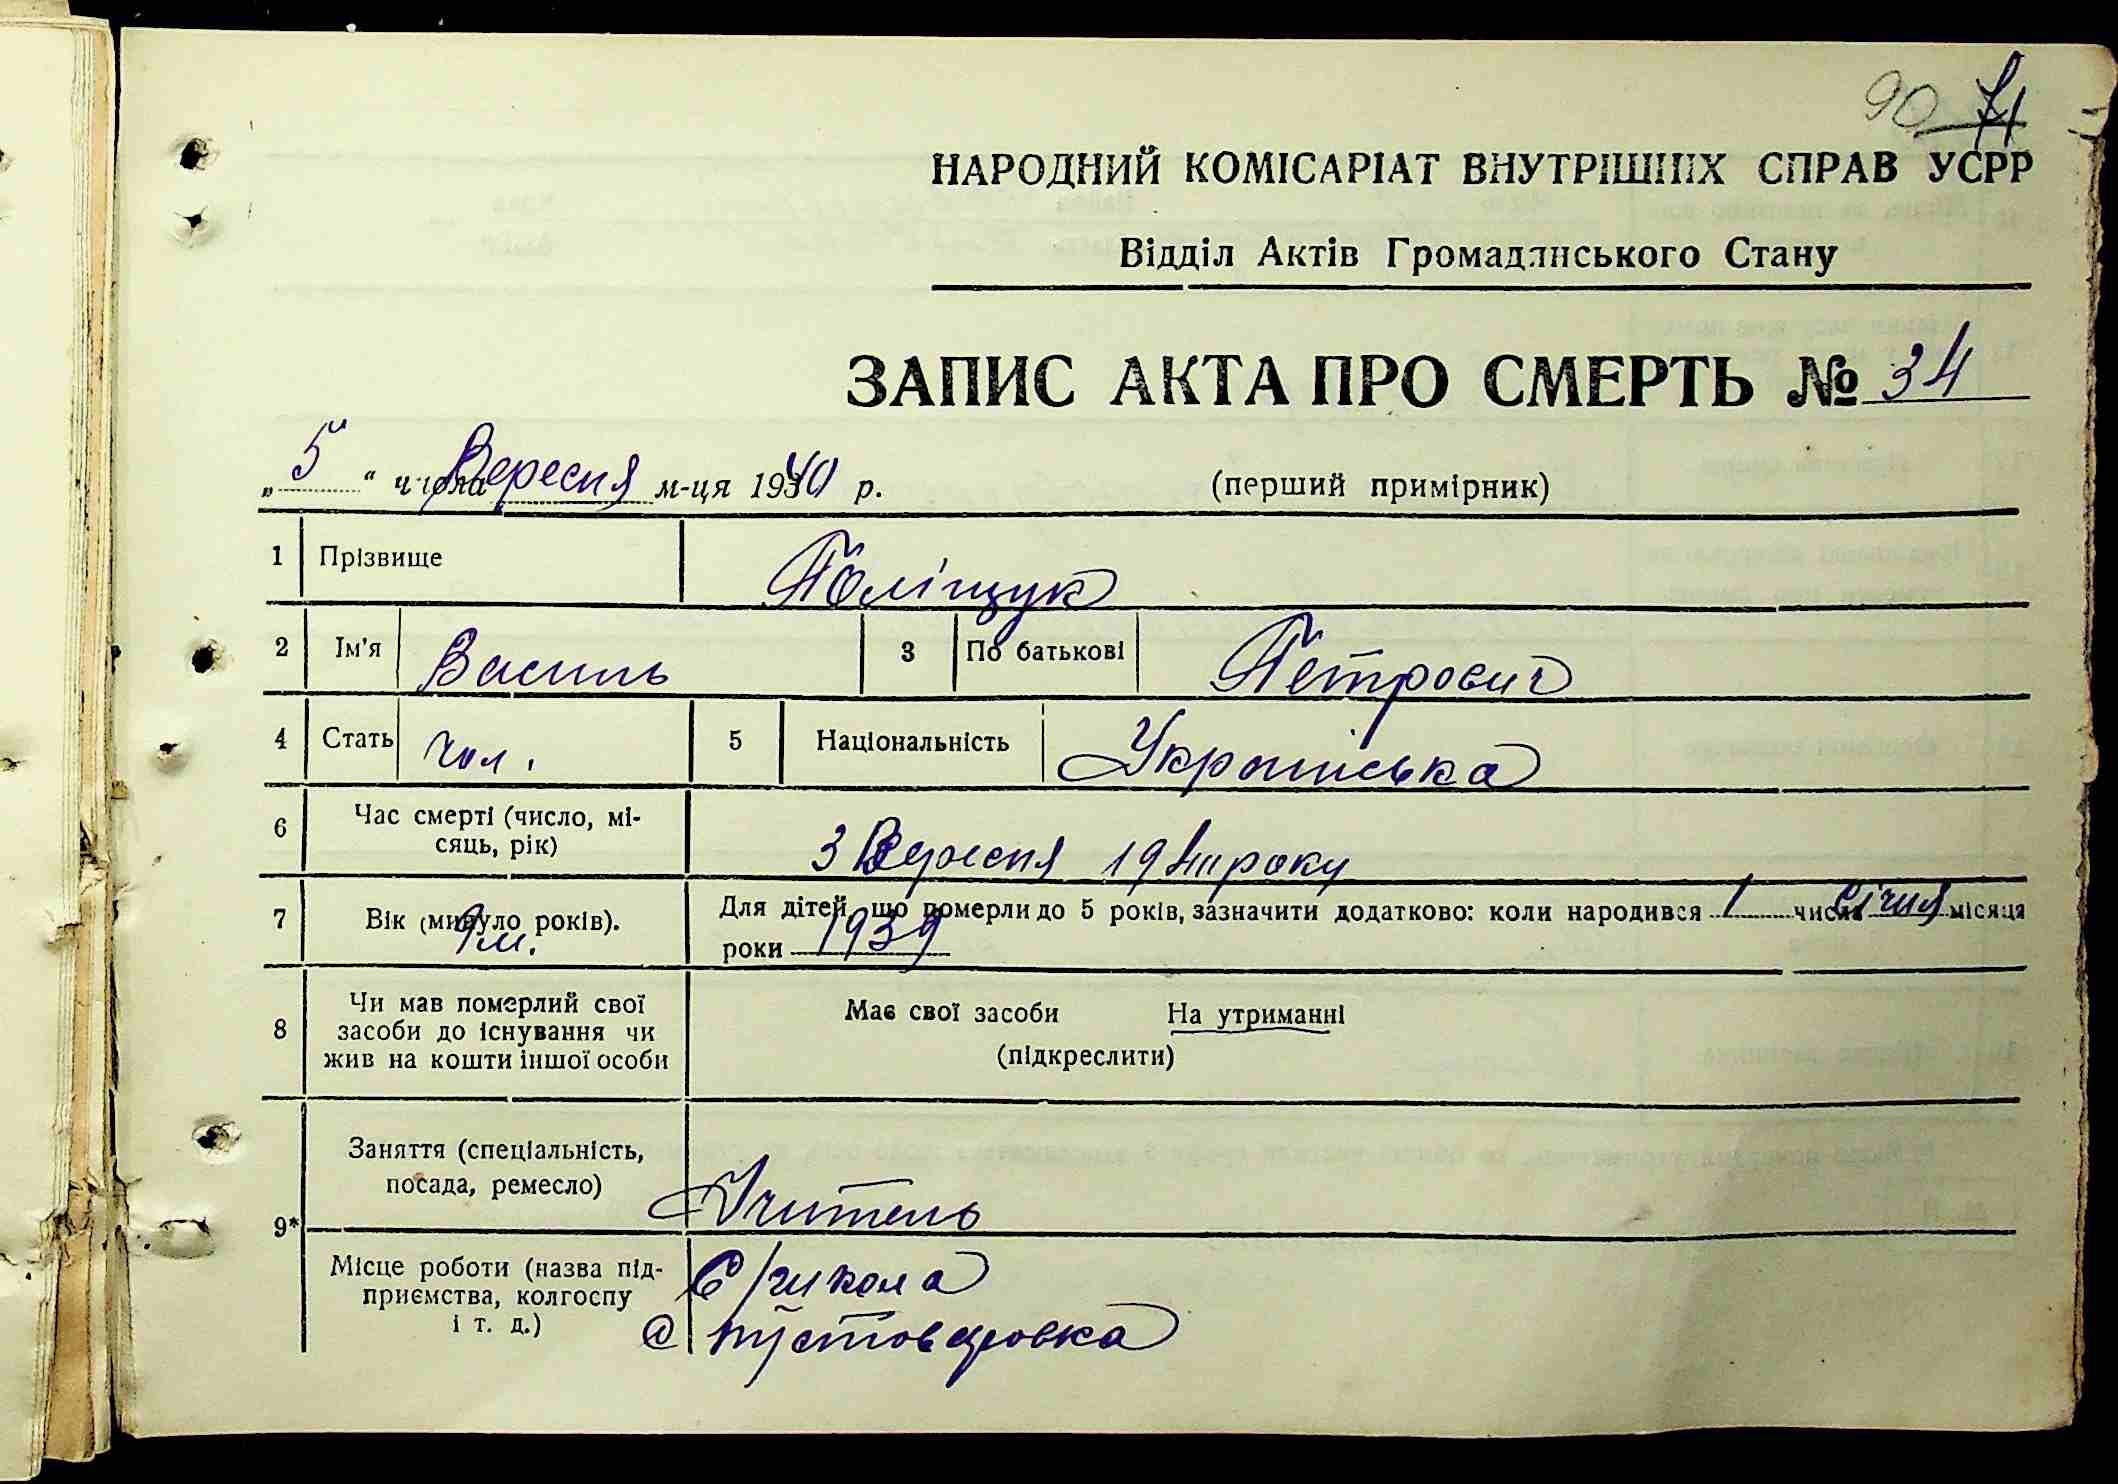 90 71
НАРОДНИЙ КОМІСАРІАТ ВНУТРІШНІХ СПРАВ УСРР
Відділ Актів Громадянського Стану
ЗАПИС АКТА ПРО СМЕРТЬ № 34
„5“ числа Вересня м-ця 1940 р. (перший примірник)
1 Прізвище Поліщук
2 Ім'я Василь 3 По батькові Петрович
4 Стать чол. 5 Національність Українська
6 Час смерті (число, мі-
сяць, рік) 3 Вересня 1940 року
7 Вік (минуло років). Для дітей, що померли до 5 років, зазначити додатково: коли народився 1 числа Січня місяця
роки 1939
8 Чи мав померлий свої
засоби до існування чи
жив на кошти іншої особи
Має свої засоби На утриманні
(підкреслити)
9* Заняття (спеціальність,
посада, ремесло) Учитель
Місце роботи (назва під-
приємства, колгоспу
і т. д.)
С/школа
с Пустоваровка